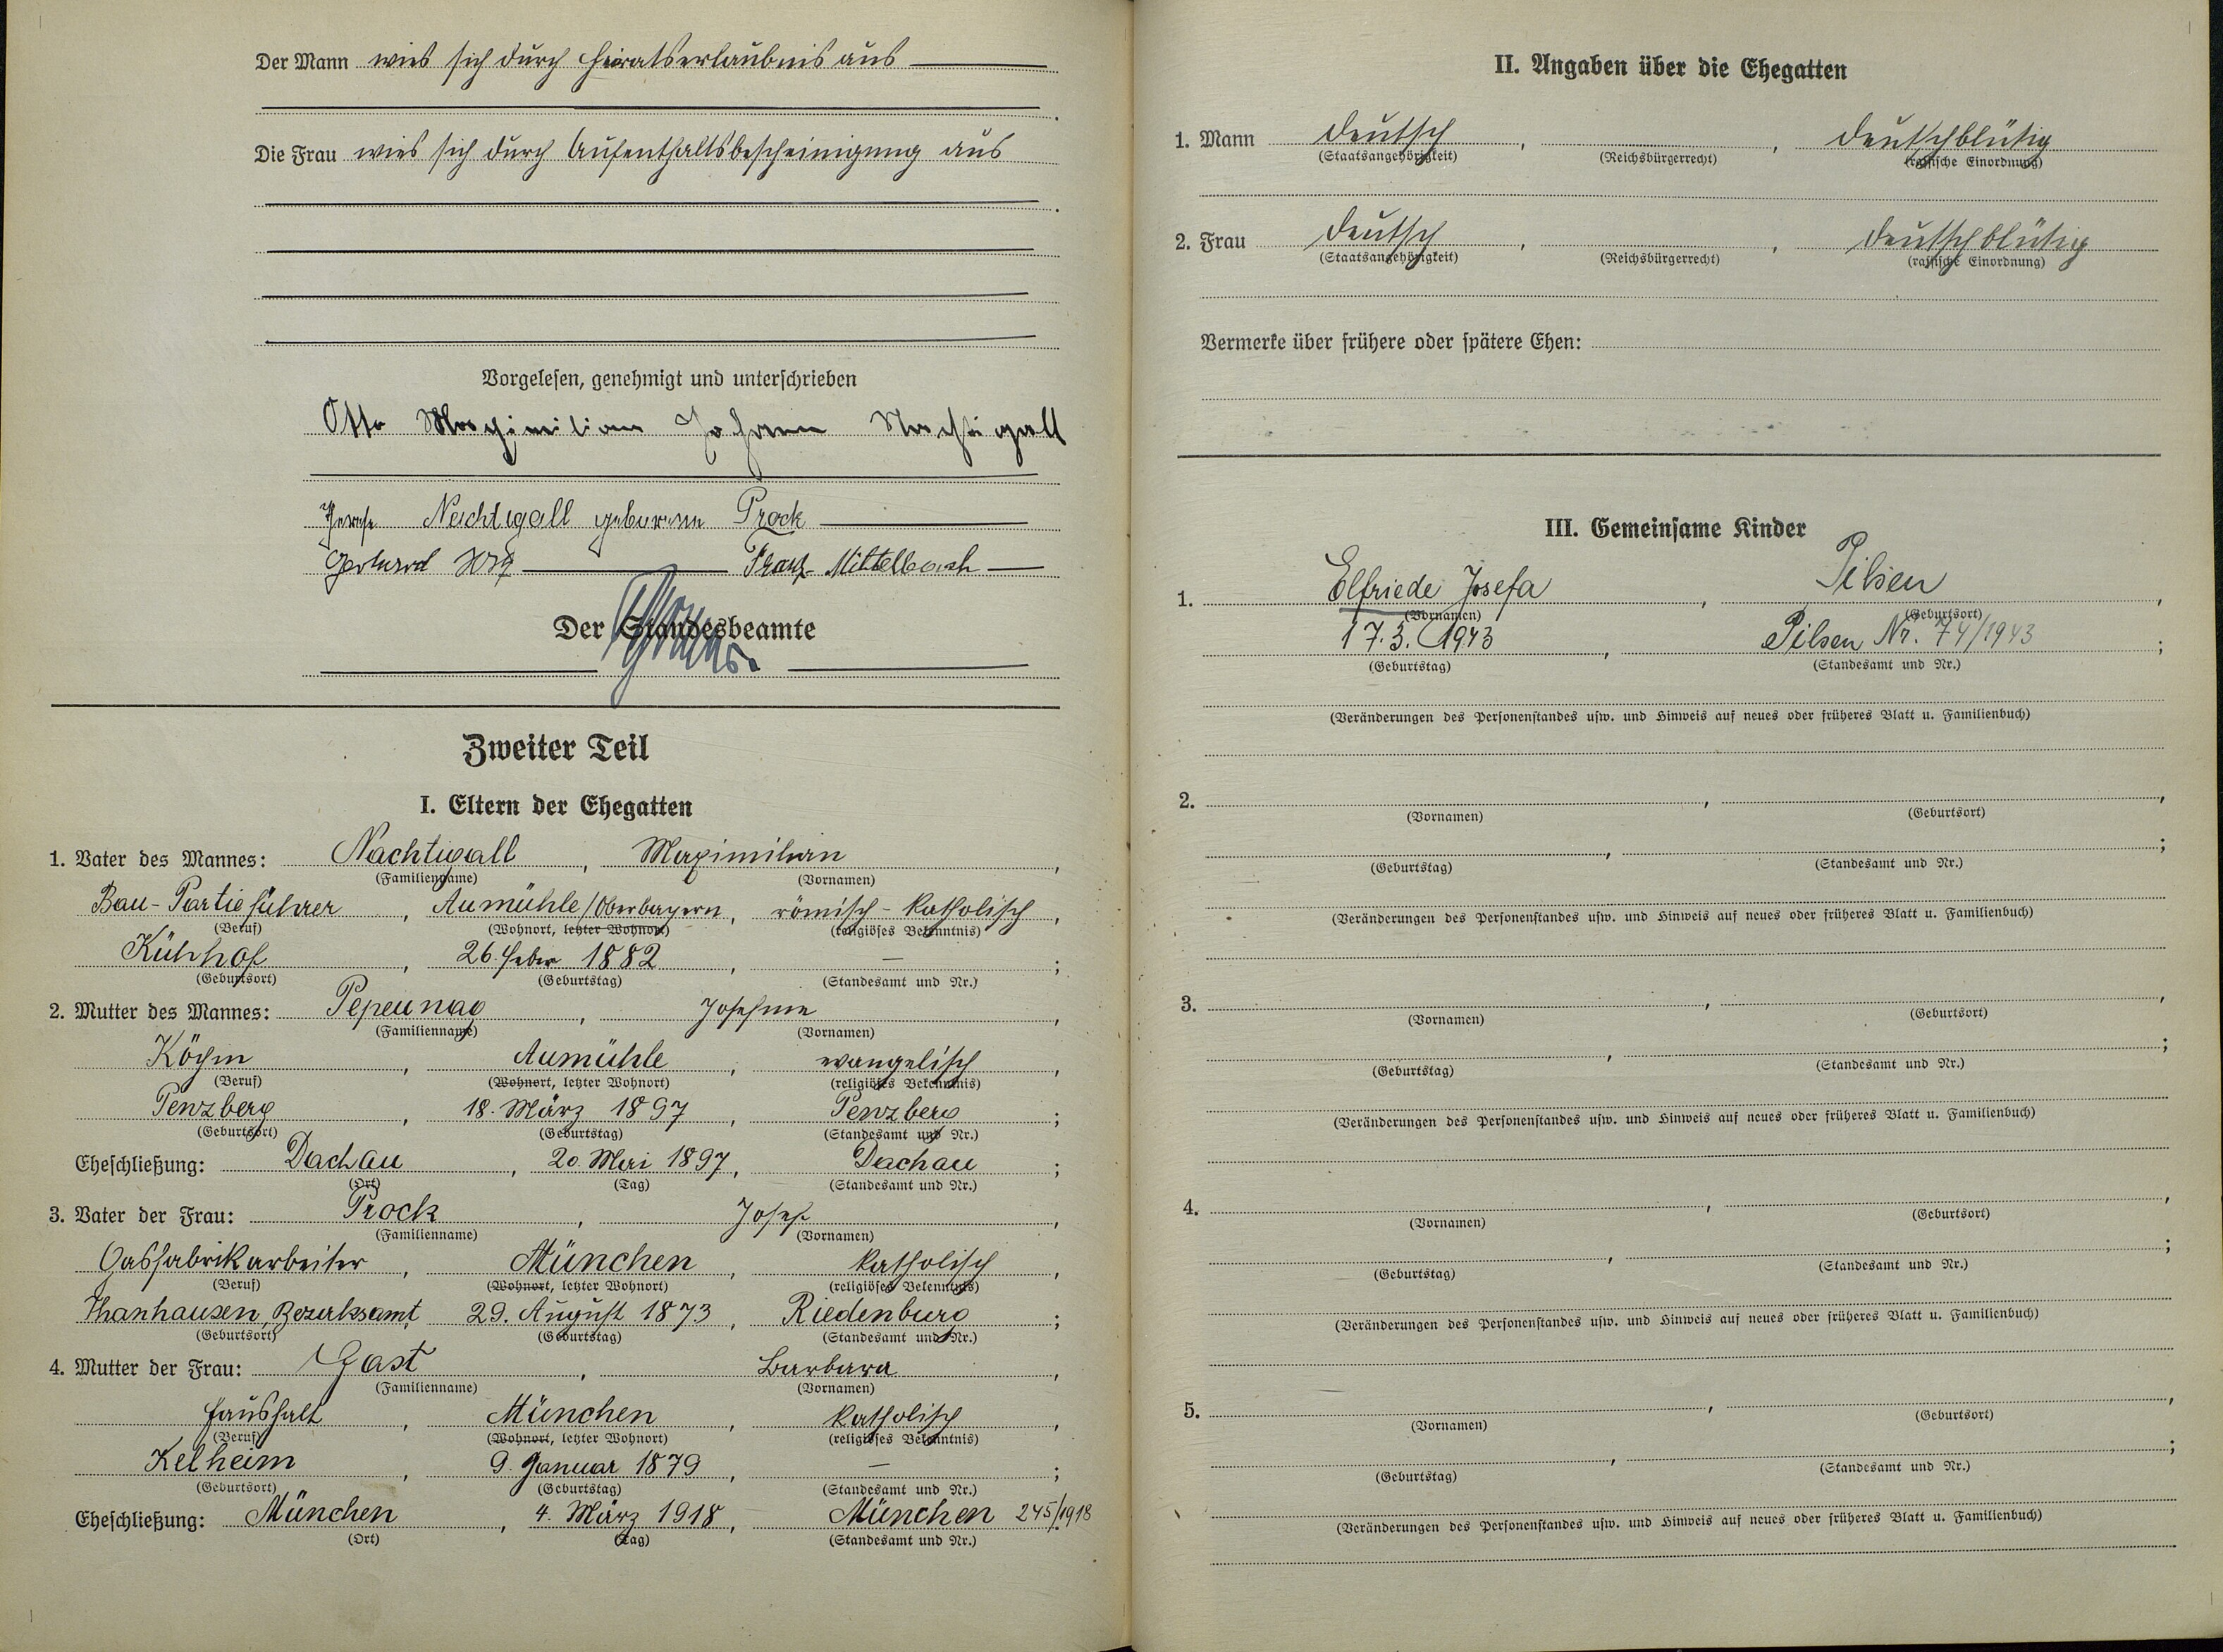 Der Mann wies sich durch Heiratserlaubnis aus
Die Frau wies sich durch Aufenthaltsbescheinigung aus
Vorgelesen, genehmigt und unterschrieben
Otto Maximilian Johann Nachtigall
Therese Nachtigall geborene Prock
Gerhard Franz Mittelbach
Der Standesbeamte
Zweiter Teil
I. Eltern der Ehegatten
1. Vater des Mannes: Nachtigall, Maximilian,
(Familienname) (Vornamen)
Bau-Partieführer, Aumühle/Oberbayern, römisch-katholisch,
(Beruf) (Wohnort, letzter Wohnort) (religiöses Bekenntnis)
Kühhof, 26. Feber 1882, — ;
(Geburtsort) (Geburtstag) (Standesamt und Nr.)
2. Mutter des Mannes: , Josefine,
(Familienname) (Vornamen)
Köchin, Aumühle, evangelisch,
(Beruf) (Wohnort, letzter Wohnort) (religiöses Bekenntnis)
Penzberg, 18. März 1897, Penzberg;
(Geburtsort) (Geburtstag) (Standesamt und Nr.)
Eheschließung: Dachau, 20. Mai 1897, Dachau;
(Ort) (Tag) (Standesamt und Nr.)
3. Vater der Frau: Prock, Josef,
(Familienname) (Vornamen)
Gasfabrikarbeiter, München, katholisch,
(Beruf) (Wohnort, letzter Wohnort) (religiöses Bekenntnis)
Thanhausen, Bezirksamt, 29. August 1873, Riedenburg;
(Geburtsort) (Geburtstag) (Standesamt und Nr.)
4. Mutter der Frau: Gast, Barbara,
(Familienname) (Vornamen)
Haushalt, München, katholisch,
(Beruf) (Wohnort, letzter Wohnort) (religiöses Bekenntnis)
Kelheim, 9. Januar 1879, — ;
(Geburtsort) (Geburtstag) (Standesamt und Nr.)
Eheschließung: München, 4. März 1918, München 245/1918
(Ort) (Tag) (Standesamt und Nr.)
II. Angaben über die Ehegatten
1. Mann deutsch, , deutschblütig
(Staatsangehörigkeit) (Reichsbürgerrecht) (rassische Einordnung)
2. Frau deutsch, , deutschblütig
(Staatsangehörigkeit) (Reichsbürgerrecht) (rassische Einordnung)
Vermerke über frühere oder spätere Ehen:
III. Gemeinsame Kinder
1. Elfriede Josefa, Pilsen,
(Vornamen) (Geburtsort)
17.3.1943, Pilsen Nr. 74/1943;
(Geburtstag) (Standesamt und Nr.)
(Veränderungen des Personenstandes usw. und Hinweis auf neues oder früheres Blatt u. Familienbuch)
2. , ,
(Vornamen) (Geburtsort)
, ;
(Geburtstag) (Standesamt und Nr.)
(Veränderungen des Personenstandes usw. und Hinweis auf neues oder früheres Blatt u. Familienbuch)
3. , ,
(Vornamen) (Geburtsort)
, ;
(Geburtstag) (Standesamt und Nr.)
(Veränderungen des Personenstandes usw. und Hinweis auf neues oder früheres Blatt u. Familienbuch)
4. , ,
(Vornamen) (Geburtsort)
, ;
(Geburtstag) (Standesamt und Nr.)
(Veränderungen des Personenstandes usw. und Hinweis auf neues oder früheres Blatt u. Familienbuch)
5. , ,
(Vornamen) (Geburtsort)
, ;
(Geburtstag) (Standesamt und Nr.)
(Veränderungen des Personenstandes usw. und Hinweis auf neues oder früheres Blatt u. Familienbuch)